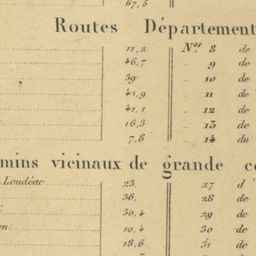 67,5
Routes Département
11,2 Nos 8 de
46,7 9 de
39 10 de
41,9 11 de
41,1 12 de
16,3 13 de
7,8 14 du
mins vicinaux de grande co
Loudéac 23, 27 d'
38, 28 de
30,4 29 de
en 10,4 30 de
18,6 31 de